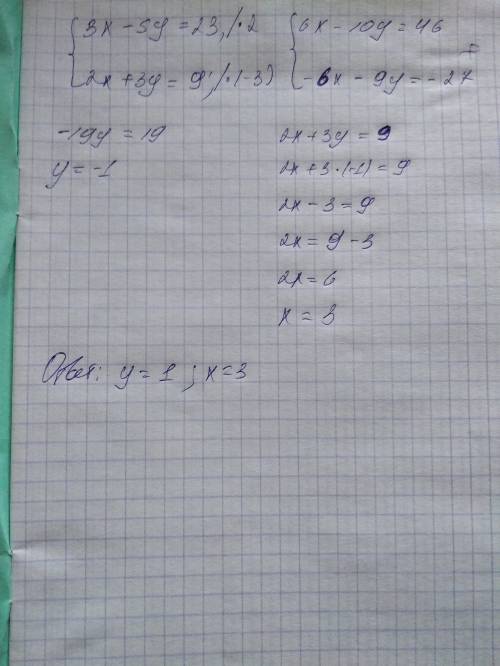 3x - 5y = 23, / · 2
2x + 3y = 9; / · (-3)
6x - 10y = 46
-6x - 9y = -27
=
-19y = 19
y = -1
2x + 3y = 9
2x + 3 · (-1) = 9
2x - 3 = 9
2x = 9 - 3
2x = 6
x = 3
Ответ: y = 1 ; x = 3